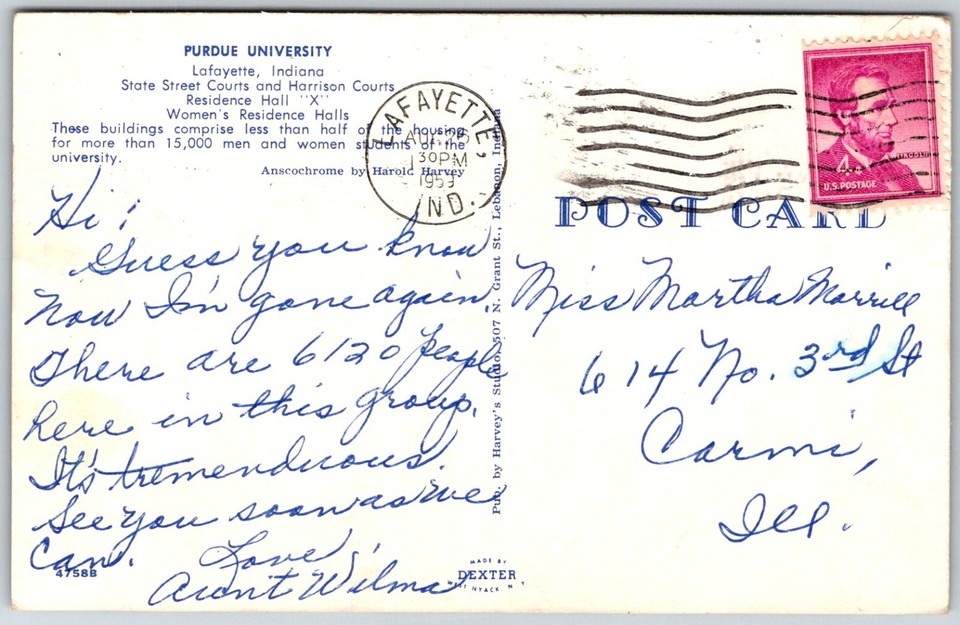 PURDUE UNIVERSITY
Lafayette, Indiana
State Street Courts and Harrison Courts
Residence Hall "X"
Women's Residence Halls
These buildings comprise less than half of the housing
for more than 15,000 men and women students of the
university.
Anscochrome by Harold Harvey
Hi!
Guess you know
now I'm gone again.
There are 6120 people
here in this group.
It's tremenduous.
See you soon as we
can.
Love,
Aunt Wilma
4758B
LAFAYETTE,
AUG 25
1 30 PM
1959
IND.
Pub. by Harvey's Studio, 507 N. Grant St., Lebanon, Indiana
LINCOLN
4¢
U.S. POSTAGE
POST CARD
Miss Martha Morrill
614 No. 3rd St
Carmi,
Ill.
MADE BY
DEXTER
WEST NYACK, N. Y.